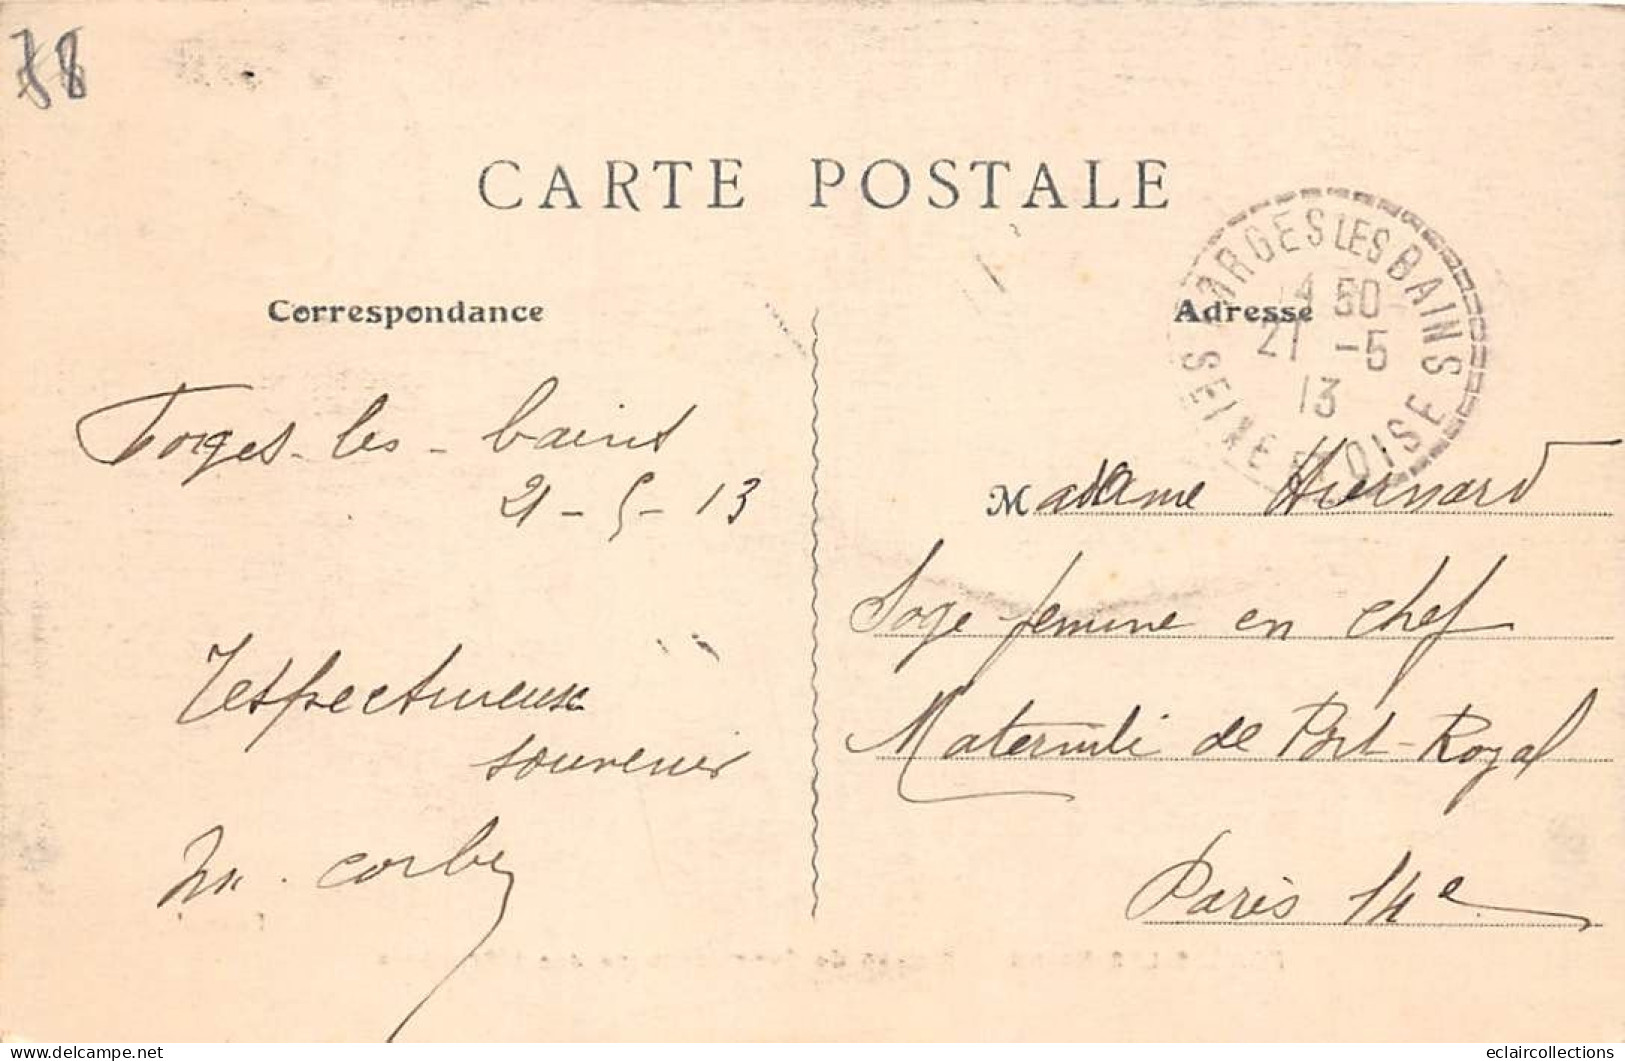 78
CARTE POSTALE
Correspondance
Adresse
ARGES LES BAINS
14 50
21 -5
13
SEINE ET OISE
Forges-les-bains
21-5-13
Madame
Sage femme en chef
Maternité de Port-Royal
Paris 14e
respectueux
souvenir
M. Corby
eclaircollections